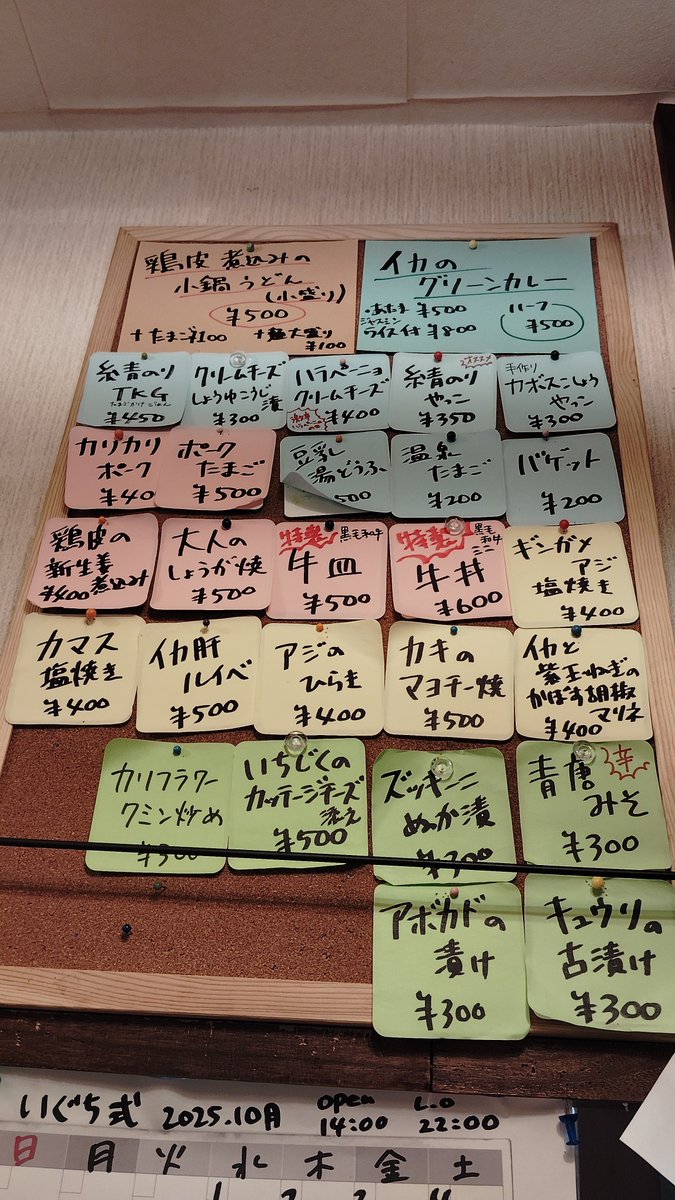 鶏皮煮込みの
小鍋うどん
(小盛り)
¥500
+たまご¥100
+麺大盛り
¥100
イカの
グリーンカレー
・あたま ¥500
ジャスミン
ライス付 ¥800
ハーフ
¥500
糸青のり
TKG
たまごかけごはん
¥450
クリームチーズ
しょうゆこうじ
漬
¥300
ハラペーニョ
クリームチーズ
¥400
オススメ
糸青のり
やっこ
¥350
手作り
カボスこしょう
やっこ
¥300
カリカリ
ポーク
¥40
ポーク
たまご
¥500
豆乳
湯どうふ
500
温泉
たまご
¥200
バゲット
¥200
鶏皮の
新生姜
煮込み
¥400
大人の
しょうが焼
¥500
特製
黒毛和牛
牛皿
¥500
特製
黒毛和牛
ミニ
牛丼
¥600
ギンガメ
アジ
塩焼き
¥400
カマス
塩焼き
¥400
イカ肝
ルイベ
¥500
アジの
ひらき
¥400
カキの
マヨチー焼
¥500
イカと
紫玉ねぎの
かぼす胡椒
マリネ
¥400
カリフラワー
クミン炒め
¥300
いちじくの
カッテージチーズ
添え
¥500
ズッキーニ
ぬか漬
¥300
青唐
辛
みそ
¥300
アボカドの
漬け
¥300
キュウリの
古漬け
¥300
いぐち式 2025.10月 open 14:00 L.O 22:00
日 月 火 水 木 金 土